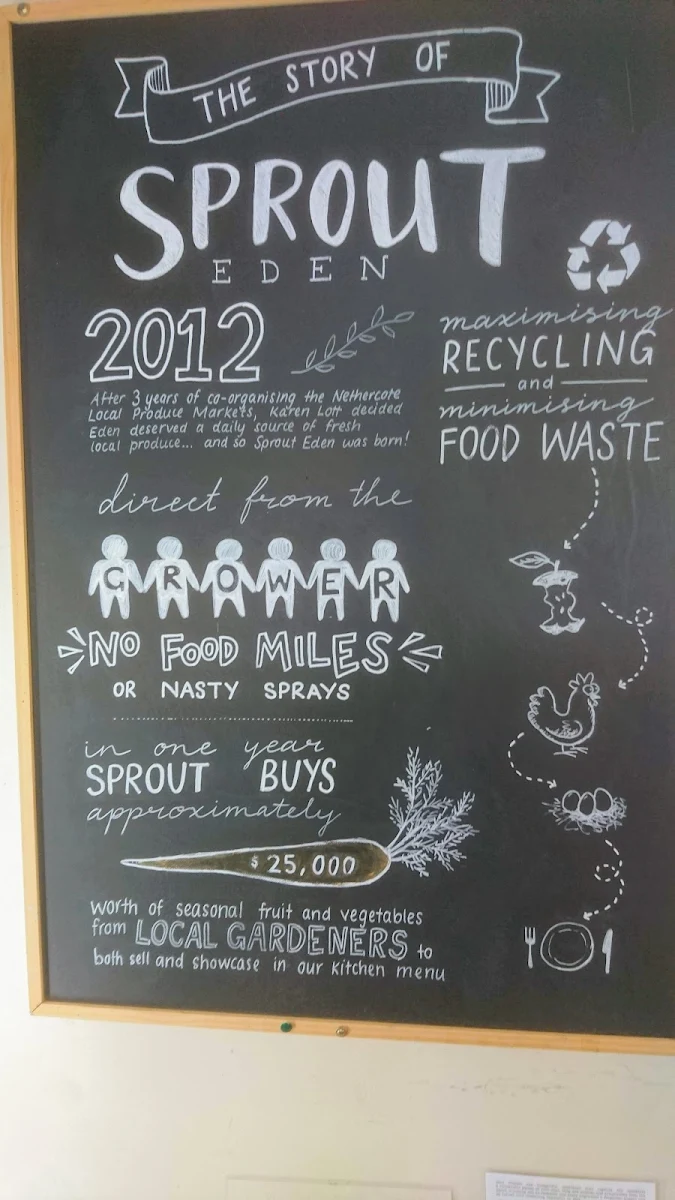 THE STORY OF
SPROUT
EDEN
2012
After 3 years of co-organising the Nethercote
Local Produce Markets, Karen Lott decided
Eden deserved a daily source of fresh
local produce... and so Sprout Eden was born!
direct from the
GROWER
NO FOOD MILES
OR NASTY SPRAYS
in one year
SPROUT BUYS
approximately
$25,000
worth of seasonal fruit and vegetables
from LOCAL GARDENERS to
both sell and showcase in our kitchen menu
maximising
RECYCLING
and
minimising
FOOD WASTE